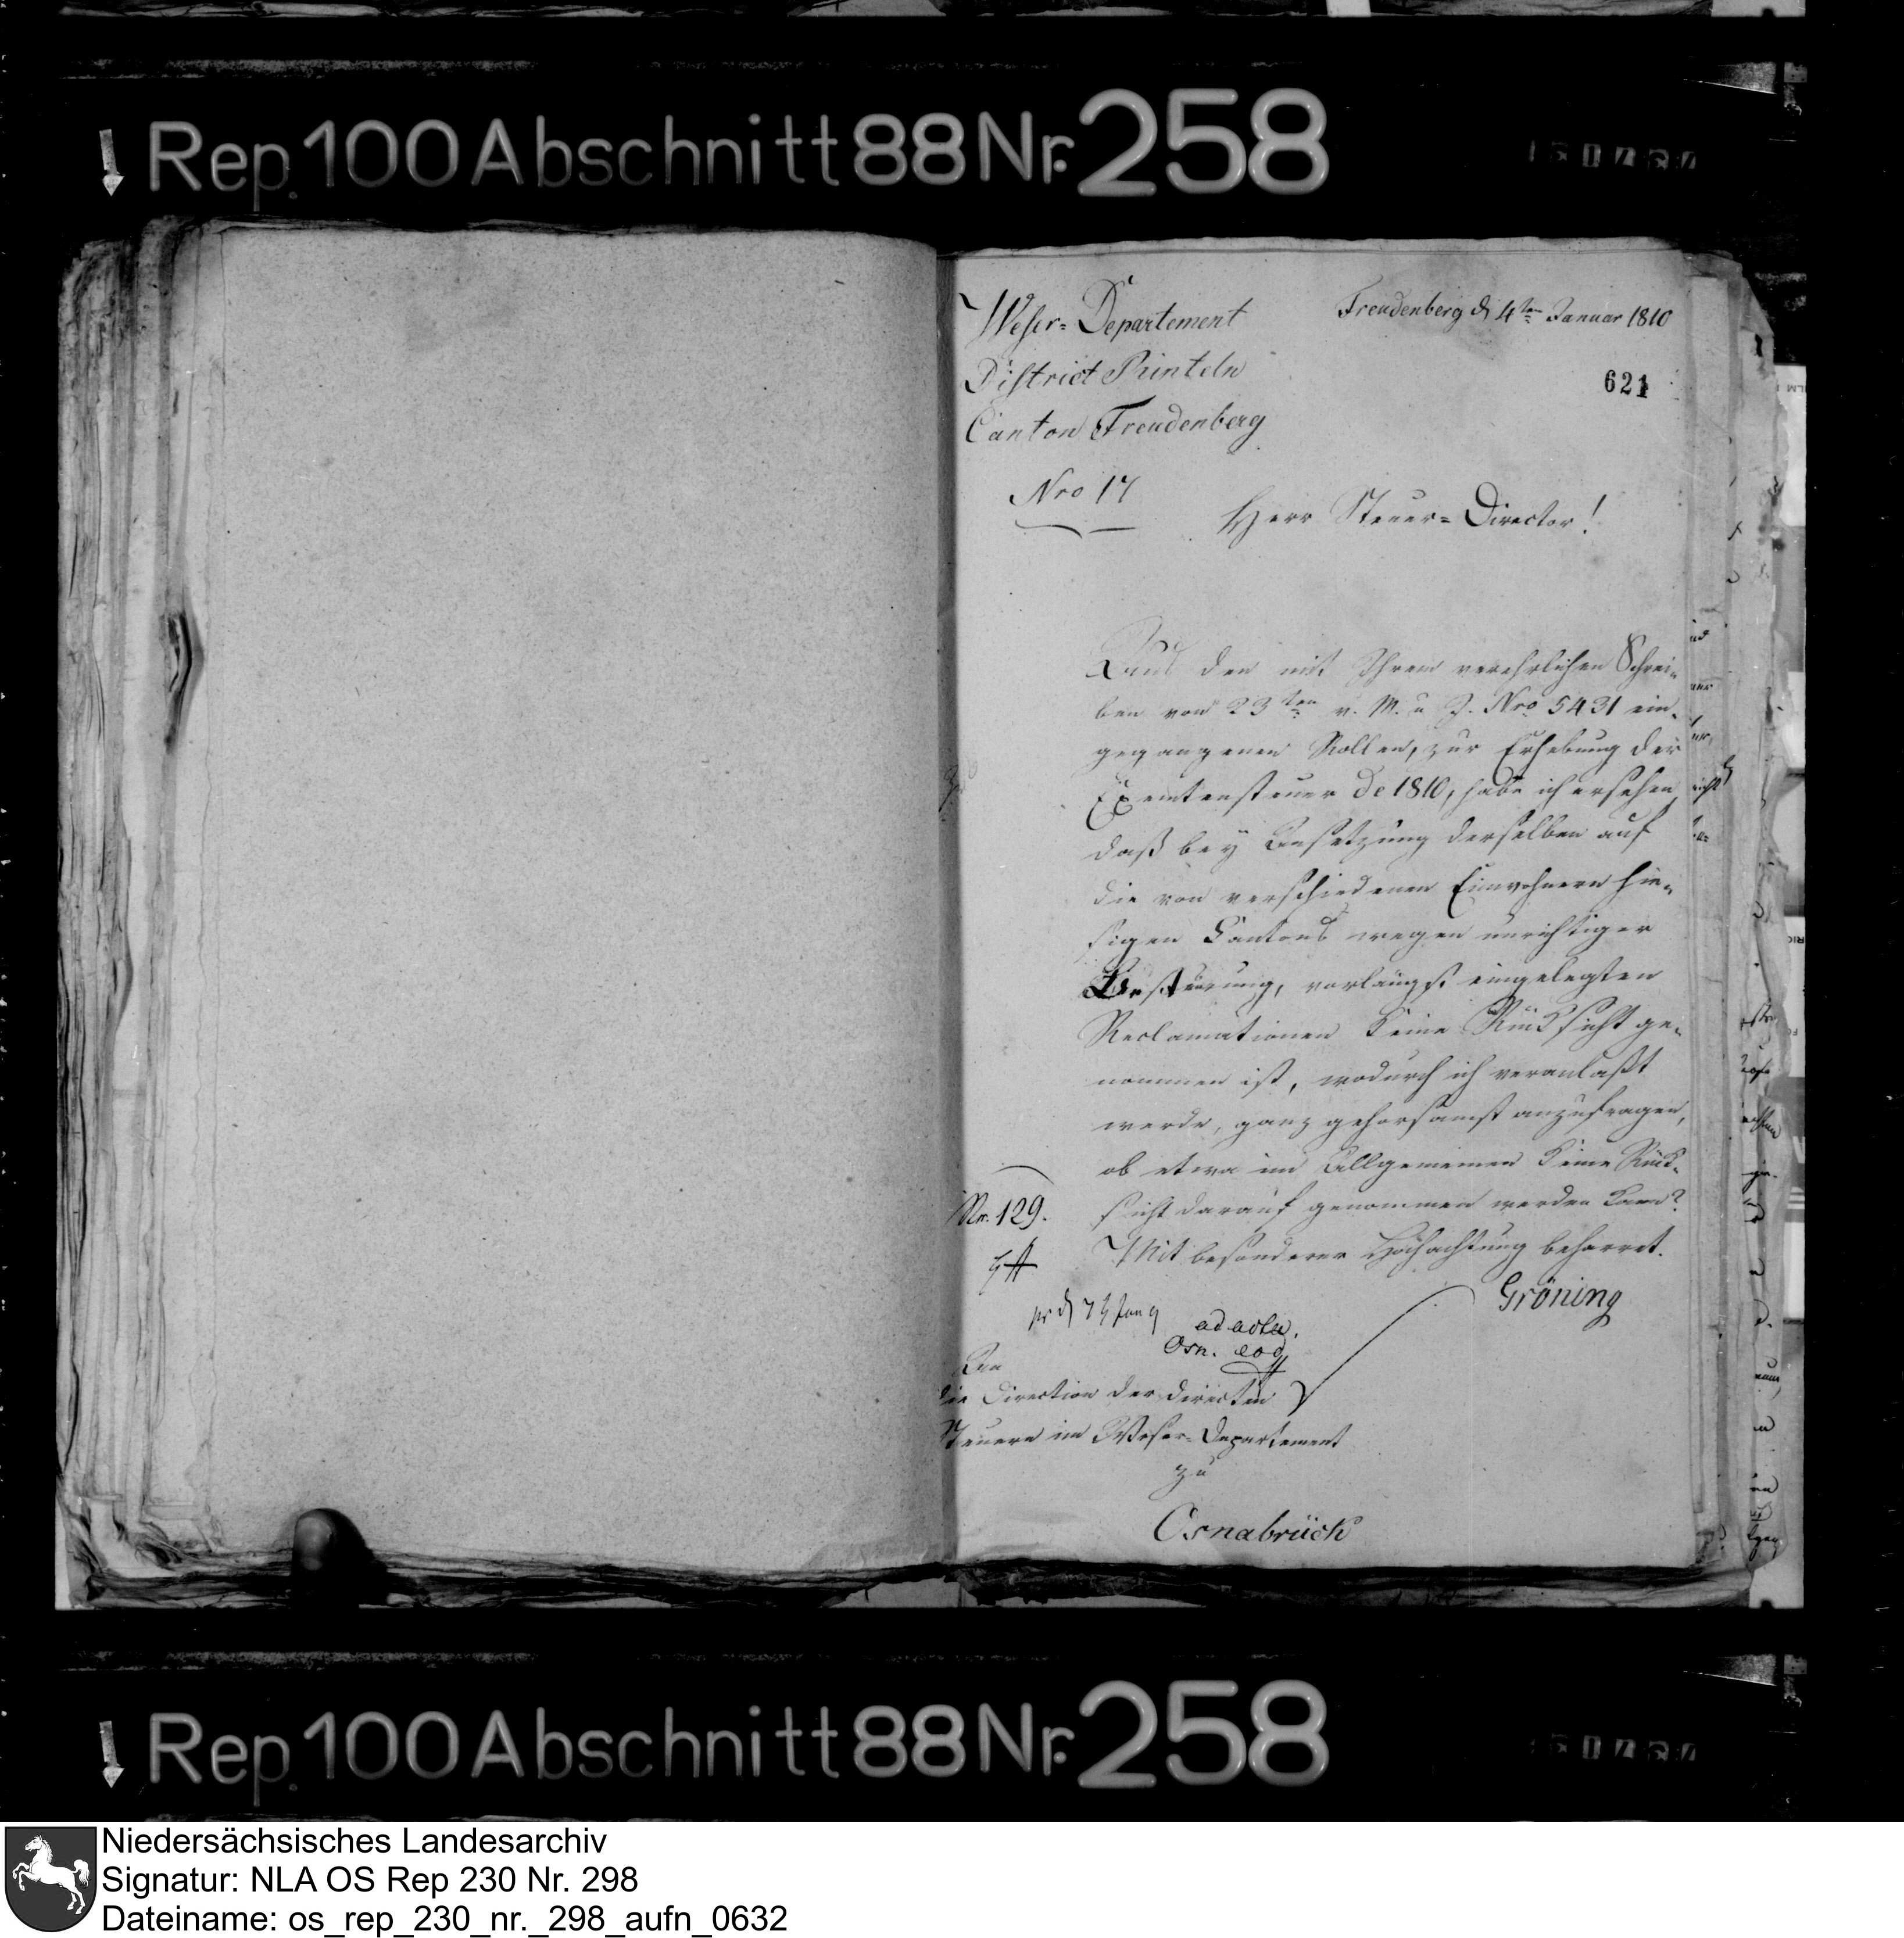 Rep. 100 Abschnitt 88 Nr. 258
Weser=Departement
District Rinteln
Canton Freudenberg
Freudenberg d 4ten Januar 1810
621
Nro 17
Herr Steuer=Director!
Aus den mit Ihrem verehrlichen Schrei=
ben von 23ten v. M. u J. Nro 5431 ein=
gegangenen Rollen, zur Erhebung der
Exemtensteuer de 1810, habe ich ersehen
daß bey Ansetzung derselben auf
die von verschiedenen Einwohnern hie=
sigen Cantons wegen unrichtiger
Besteurung, vorlängst eingelegten
Reclamationen keine Rücksicht ge=
nommen ist, wodurch ich veranlaßt
werde, ganz gehorsamst anzufragen,
ob etwa im Allgemeinen keine Rück=
sicht darauf genommen werden kann?
Mit besonderer Hochachtung beharret.
Gröning
Nr. 129.
ad acta.
Osn. eod
An
die Direction der directen
Steuern im Weser=Departement
zu
Osnabrück
Rep. 100 Abschnitt 88 Nr. 258
Niedersächsisches Landesarchiv
Signatur: NLA OS Rep 230 Nr. 298
Dateiname: os_rep_230_nr._298_aufn_0632